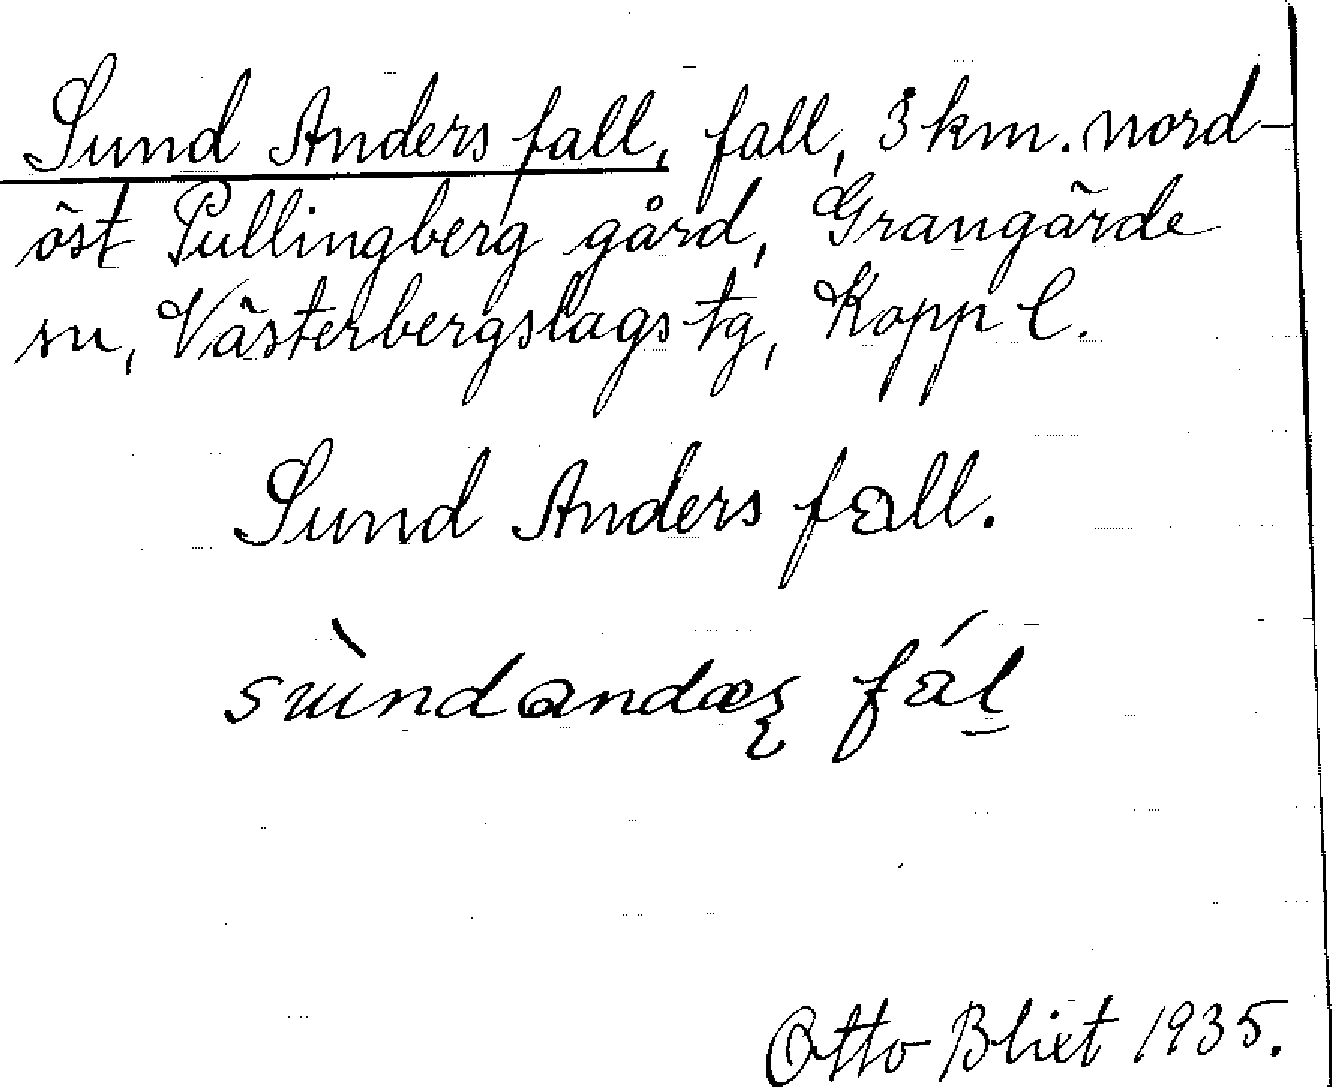 Sund Anders fall, fall, 3 km. nord-
öst Pullingberg gård, Grangärde
sn, Västerbergslags tg, Kopp l.
Sund Anders fall.
sùndandæʂ fál̲
Otto Blixt 1935.